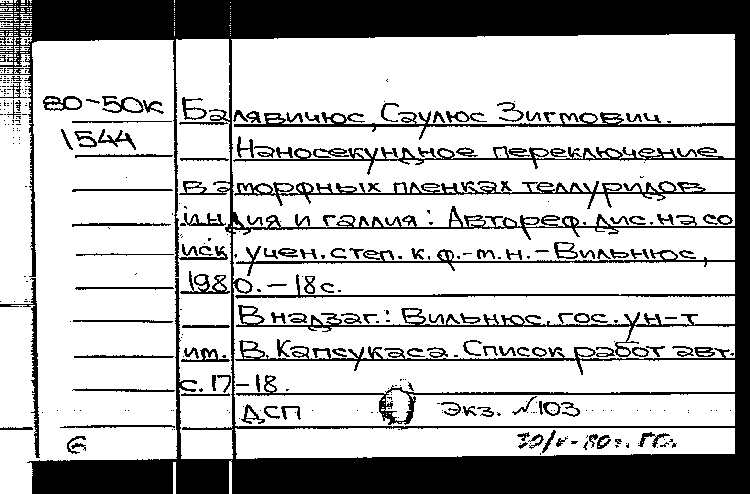 80-50к Балявичюс, Саулюс Зигмович.
1544 Наносекундное переключение
в аморфных пленках теллуридов
индия и галлия: Автореф. дис. на со
иск. учен. степ. к. ф.-м.н.-Вильнюс,
1980.-18с.
В надзаг.: Вильнюс. гос. ун-т
им. В. Капсукаса. Список работ авт.
с. 17-18.
ДСП экз. №103